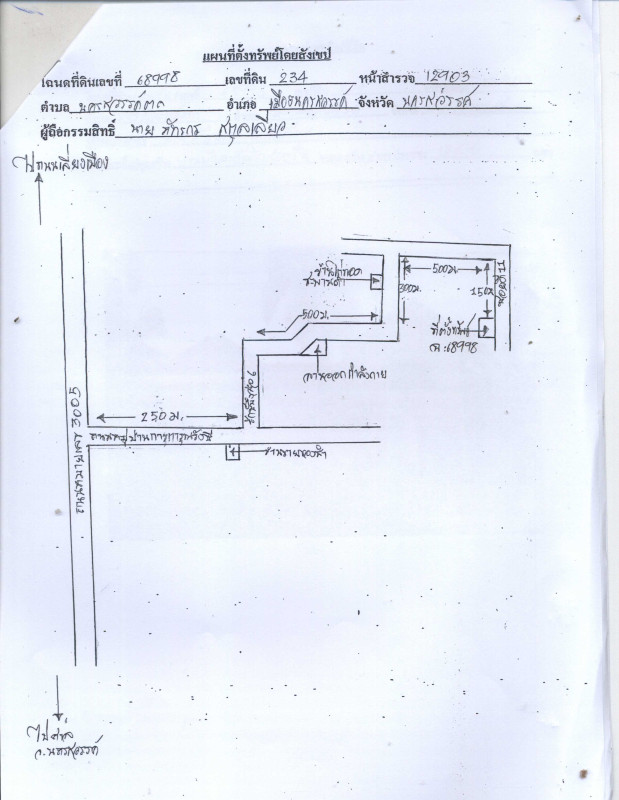 แผนที่ตั้งทรัพย์โดยสังเขป
โฉนดที่ดินเลขที่ 68998 เลขที่ดิน 234 หน้าสำรวจ 12903
ตำบล นครสวรรค์ตก อำเภอ เมืองนครสวรรค์ จังหวัด นครสวรรค์
ผู้ถือกรรมสิทธิ์ นาย
ไปถนนเลี่ยงเมือง
500ม.
300ม.
150ม
ซอย 11
ที่ตั้งทรัพย์
ฉ.68998
500ม.
ลานออกกำลังกาย
250ม.
ถนนหมายเลข 3005
ร้านขายของชำ
ไปศาล
จ.นครสวรรค์